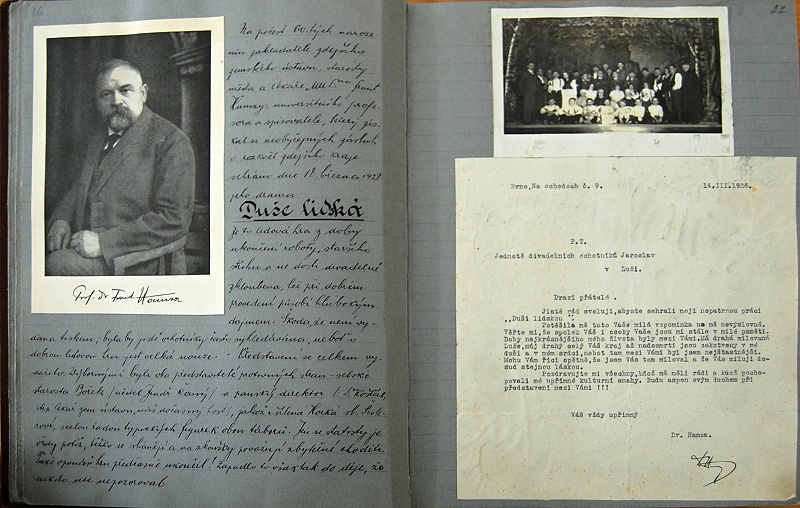 66
Na počest 60.tých naroze
nin zakladatele zdejšího
zemského ústavu, starosty
města a lékaře, MUDra Frant
Hamzy, universitního profe
sora a spisovatele, který zís
kal si neobyčejných zásluh
o rozkvět zdejšího kraje
sehráno dne 18. března 1928
jeho drama
Duše lidská
Je to lidová hra z doby
ukončení roboty, staršího
a ne dosti divadelně
zhloubena, leč při dobrém
provedení působí hlubokým
dojmem. Škoda, že není vy-
dána tiskem, byla by jistě ochotníky často vyhledávána, neboť o
dobrou lidovou hru jest velká nouze. - Představení se celkem vy-
dařilo. Výbornými byli oba představitelé
starosta a panský direktor
lékař zem. ústavu, náš dočasný host), jakož i Milena Horká
řadou typických figurek obou táborů. Jen se statisty je
vždy potíž, těžko se shánějí a na zkoušky považují zbytečné choditi.
Také oponáři hru předčasně ukončil! Zapadlo to však tak do děje, že
nikdo nic nepozoroval
Prof. Dr Frant. Hamza
22
Brno, Na schodech č. 9.
14.III.1928.
P.T.
Jednotě divadelních ochotníků Jaroslav
v Luži.
Drazí přátelé.
Jistě rád svoluji, abyste sehráli moji nepatrnou práci
,,Duši lidskou".
Potěšila mě tato Vaše milá vzpomínka na mě nevýslovně.
Věřte mi, že spolek Váš i osoby Vaše jsou mi stále v milé paměti.
Doby nejkrásnějšího mého života byly mezi Vámi. Má drahá milovaná
Luže, můj drahý celý Váš kraj až nadosmrti jsou zakotveny v mé
duši a v mém srdci, neboť tam mezi Vámi byl jsem nejšťastnějším.
Mohu Vám říci opětně, že jsem Vás tam miloval a že Vás miluji do-
sud stejnou láskou.
Pozdravujte mi všechny, kdož mě měli rádi a kdož pocho-
povali mé upřímné kulturní snahy. Budu aspoň svým duchem při
představení mezi Vámi !!!
Váš vždy upřímný
Dr. Hamza.